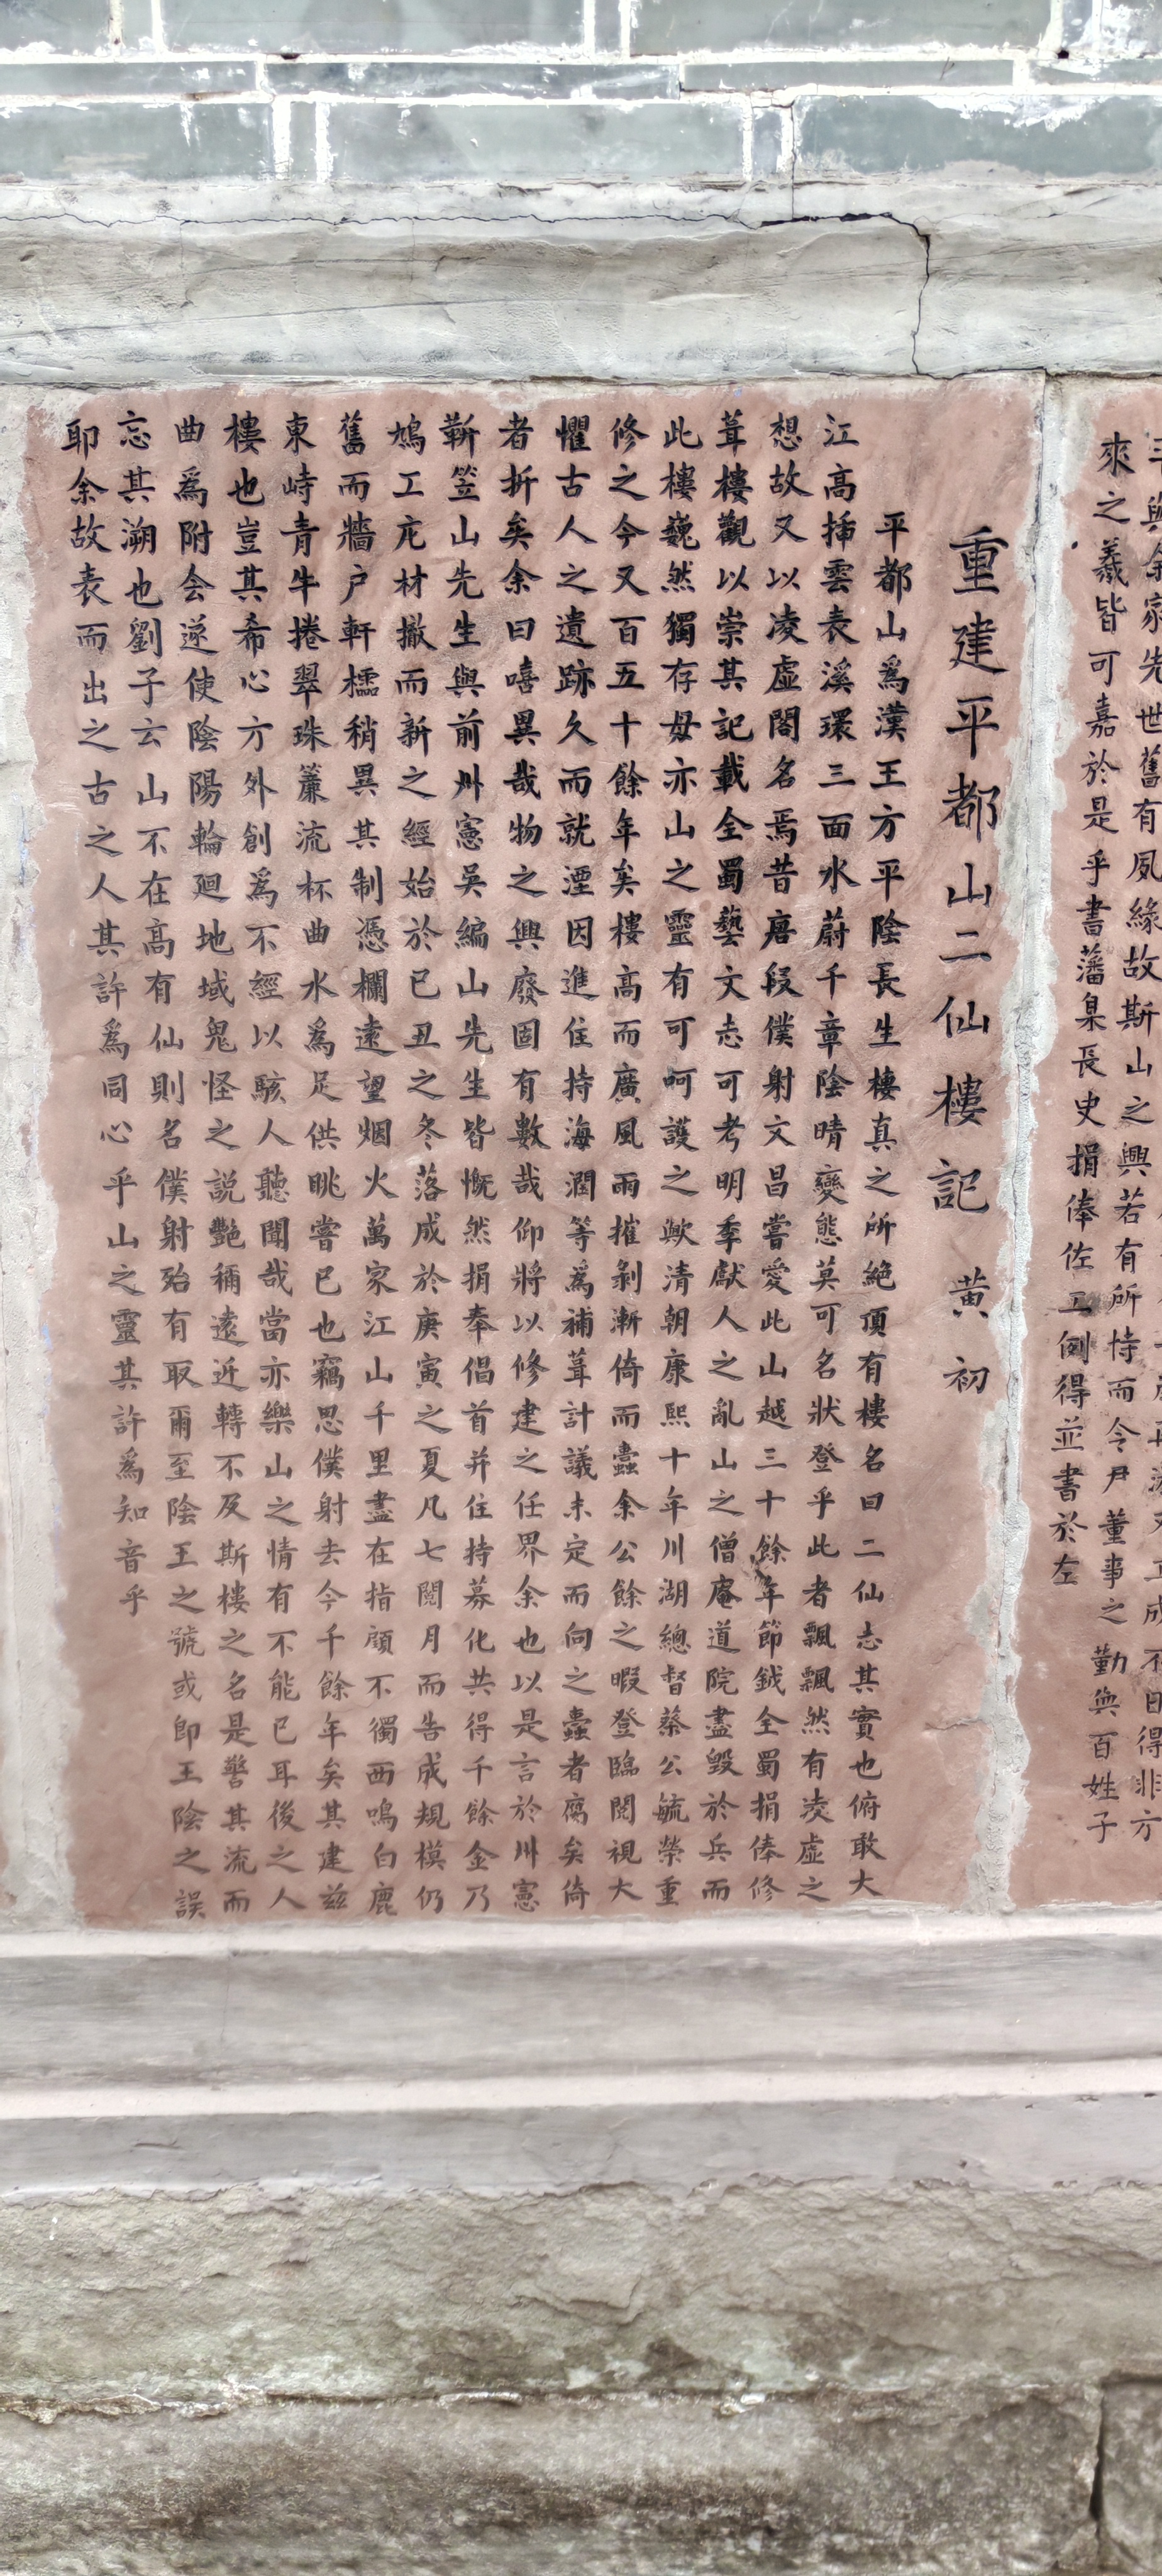 來之羲皆可嘉於是乎書藩臬長史捐俸佐工例得並書於左
重建平都山二仙樓記 黃初
平都山為漢王方平陰長生棲真之所絕頂有樓名曰二仙志其實也俯敢大
江高揷雲表溪環三面水蔚千章陰晴變態莫可名狀登乎此者飄飄然有凌虛之
想故又以凌虛閣名焉昔唐段僕射文昌嘗愛此山越三十餘年節鉞全蜀捐俸修
葺樓觀以崇其記載全蜀藝文志可考明季獻人之亂山之僧庵道院盡毀於兵而
此樓巍然獨存毋亦山之靈有可呵護之歟清朝康熙十年川湖總督蔡公毓榮重
修之今又百五十餘年矣樓高而廣風雨摧剝漸倚而蠹余公餘之暇登臨閱視大
懼古人之遺跡久而就湮因進住持海潤等為補葺計議未定而向之蠹者腐矣倚
者折矣余曰嘻異哉物之興廢固有數哉仰將以修建之任界余也以是言於州憲
靳笠山先生與前州憲吳編山先生皆慨然捐奉倡首并住持募化共得千餘金乃
鳩工庀材撤而新之經始於已丑之冬落成於庚寅之夏凡七閱月而告成規模仍
舊而牆户軒櫺稍異其制憑欄遠望烟火萬家江山千里盡在指顧不獨西鳴白鹿
東峙青牛捲翠珠簾流杯曲水為足供眺嘗已也竊思僕射去今千餘年矣其建兹
樓也豈其希心方外創為不經以駭人聽聞哉當亦樂山之情有不能已耳後之人
曲為附会遂使陰陽輪迴地域鬼怪之説艷稱遠近轉不及斯樓之名是訾其流而
忘其溯也劉子云山不在高有仙則名僕射殆有取爾至陰王之號或即王陰之誤
耶余故表而出之古之人其許為同心乎山之靈其許為知音乎